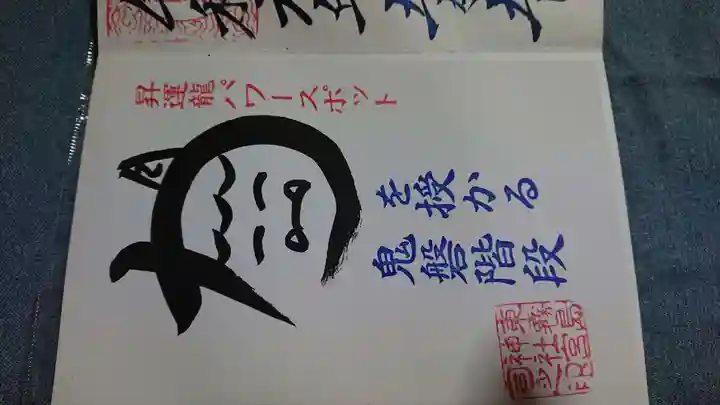 昇運龍パワースポット
を授かる
鬼磐階段
東霧島
神社宮
司之印